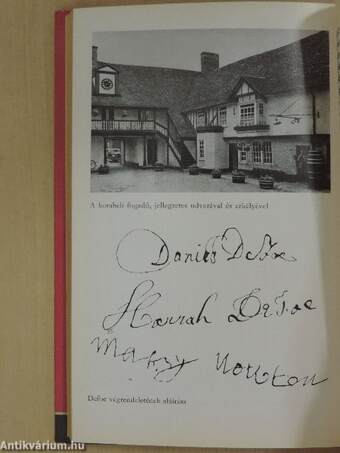 A korabeli fogadó, jellegzetes udvarával és erkélyével
Daniel De Foe
Hannah DeFoe
Mary Norton
Defoe végrendeletének aláírása
Antikvárium.hu